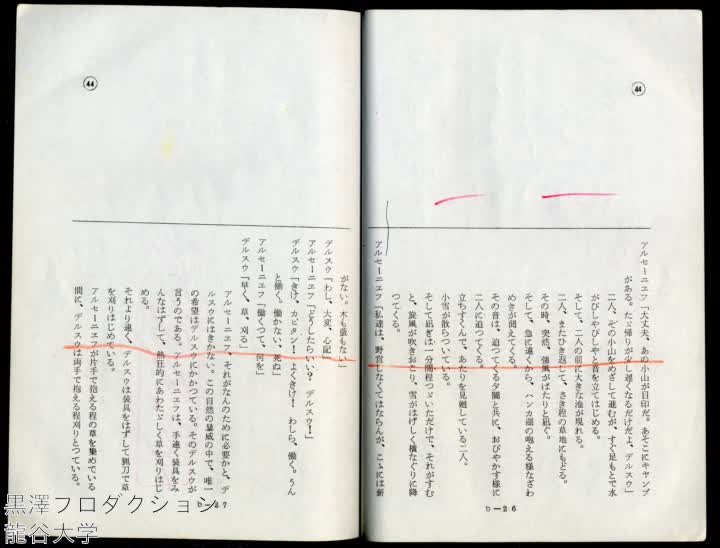 ㊹
アルセーニエフ「大丈夫、あの小山が目印だ。あそこにキャンプ
がある。たゞ帰りが少し遅くなるだけだよ、デルスウ」
二人、その小山をめざして進むが、すぐ足もとで水
がびしやびしやと音を立てはじめる。
そして、二人の前に大きな池が現れる。
二人、またひき返して、さき程の草地にもどる。
その時、突然、強風がぱたりと凪ぐ。
そして、急に遠くから、ハンカ湖の咆える様なざわ
めきが聞えてくる。
その音は、迫つてくる夕闇と共に、おびやかす様に
二人に迫つてくる。
立ちすくんで、あたりを見廻している二人。
小雪が散らついている。
そして凪ぎは一分間程つゞいただけで、それがすむ
と、旋風が吹きおこり、雪がはげしく横なぐりに降
つてくる。
アルセーニエフ「私達は、野営しなくてはならんが、こゝには薪
b—26
㊹
がない。木も藪もない」
デルスウ「わし、大変、心配」
アルセーニエフ「どうしたらいい？　デルスウ！」
デルスウ「きけ、カピタン！　よくきけ！　わしら、働く。うん
と働く。働かない、死ぬ」
アルセーニエフ「働くつて、何を」
デルスウ「早く、草、刈る」
アルセーニエフ、それがなんのために必要かと、デ
ルスウにはきかない。この自然の暴威の中で、唯一
の希望はデルスウにかかつている。そのデルスウが
言うのである。アルセーニエフは、手速く装具をみ
んなはずして、熱狂的にあわたゞしく草を刈りはじ
める。
それより速く、デルスウは装具をはずして猟刀で草
を刈りはじめている。
アルセーニエフが片手で抱える程の草を集めている
間に、デルスウは両手で抱える程刈りとつている。
b—27
黒澤プロダクション
龍谷大学